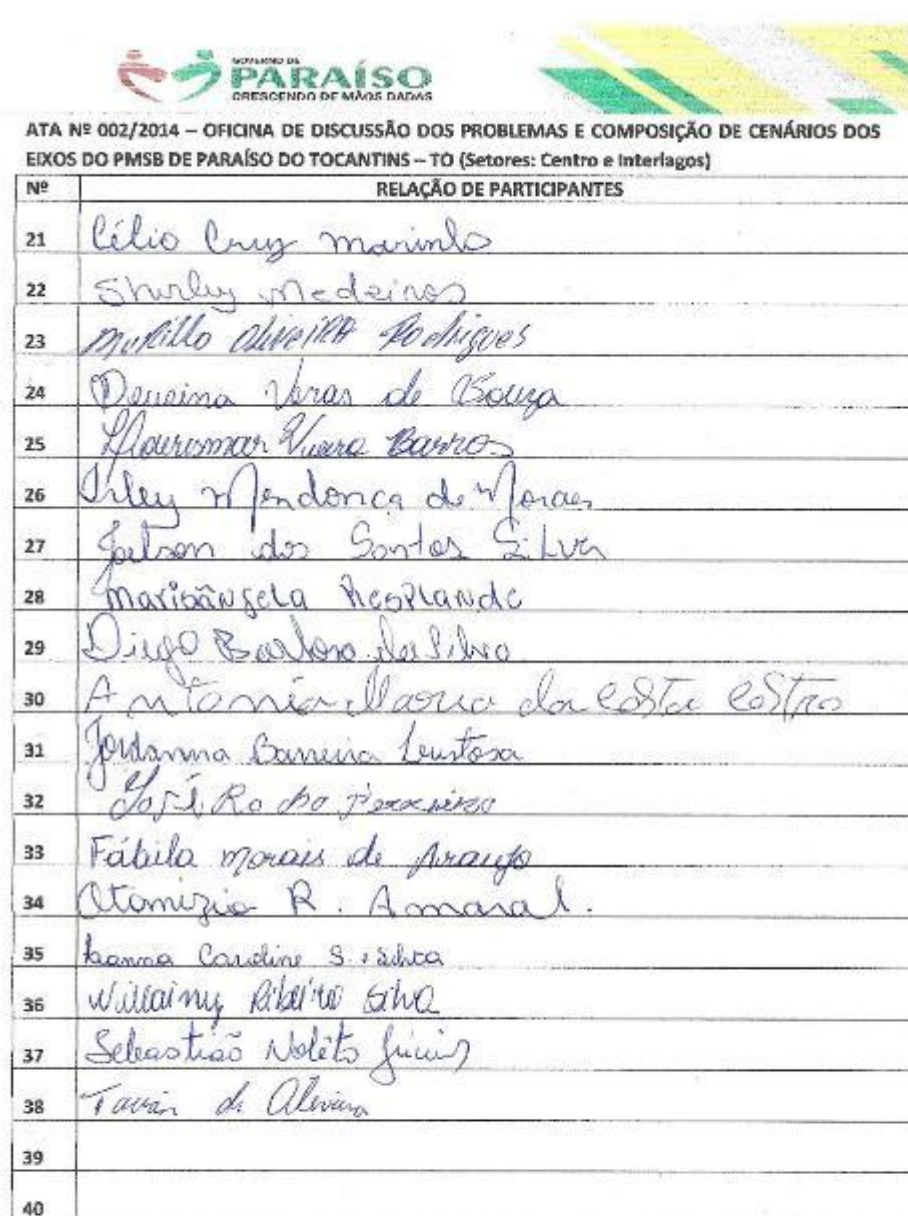 GOVERNO DE
PARAÍSO
CRESCENDO DE MÃOS DADAS
ATA Nº 002/2014 – OFICINA DE DISCUSSÃO DOS PROBLEMAS E COMPOSIÇÃO DE CENÁRIOS DOS
EIXOS DO PMSB DE PARAÍSO DO TOCANTINS – TO (Setores: Centro e Interlagos)
Nº RELAÇÃO DE PARTICIPANTES
21 Célio Cruz marinho
22 Shirley Medeiros
23 Murillo Oliveira Rodrigues
24 Veras de Souza
25 Vieira Barros
26 Irley Mendonça de Moraes
27 Joelson dos Santos Silva
28 Marisângela Resplande
29 Diego Barbosa da Silva
30 Antônia Maria da Costa Castro
31 Jordanna Barreira Lustosa
32 José Ferreira
33 Fábila morais de Araujo
34 Otamizio R. Amaral.
35 Caroline S. Silva
36 Willainy Ribeiro Silva
37 Sebastião Noleto Júnior
38 Tavian de Oliveira
39
40